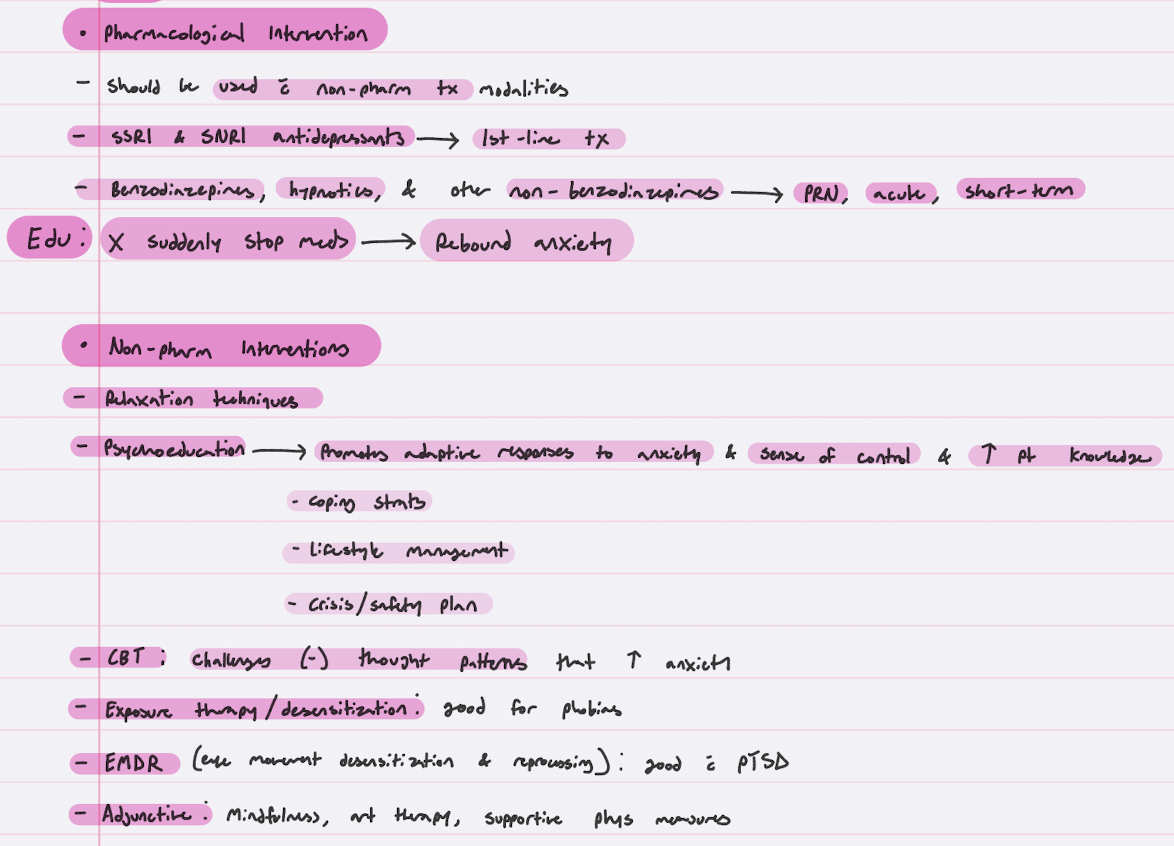 • Pharmacological Intervention
- Should be used c̄ non-pharm tx modalities
- SSRI & SNRI antidepressants → 1st-line tx
- Benzodiazepines, hypnotics, & other non-benzodiazepines → PRN, acute, short-term
Edu: X suddenly stop meds → Rebound anxiety
• Non-pharm Interventions
- Relaxation techniques
- Psychoeducation → Promotes adaptive responses to anxiety & sense of control & ↑ pt knowledge
- coping strats
- lifestyle management
- crisis/safety plan
- CBT: challenges (-) thought patterns that ↑ anxiety
- Exposure therapy/desensitization: good for phobias
- EMDR (eye movement desensitization & reprocessing): good c̄ PTSD
- Adjunctive: Mindfulness, art therapy, supportive phys measures